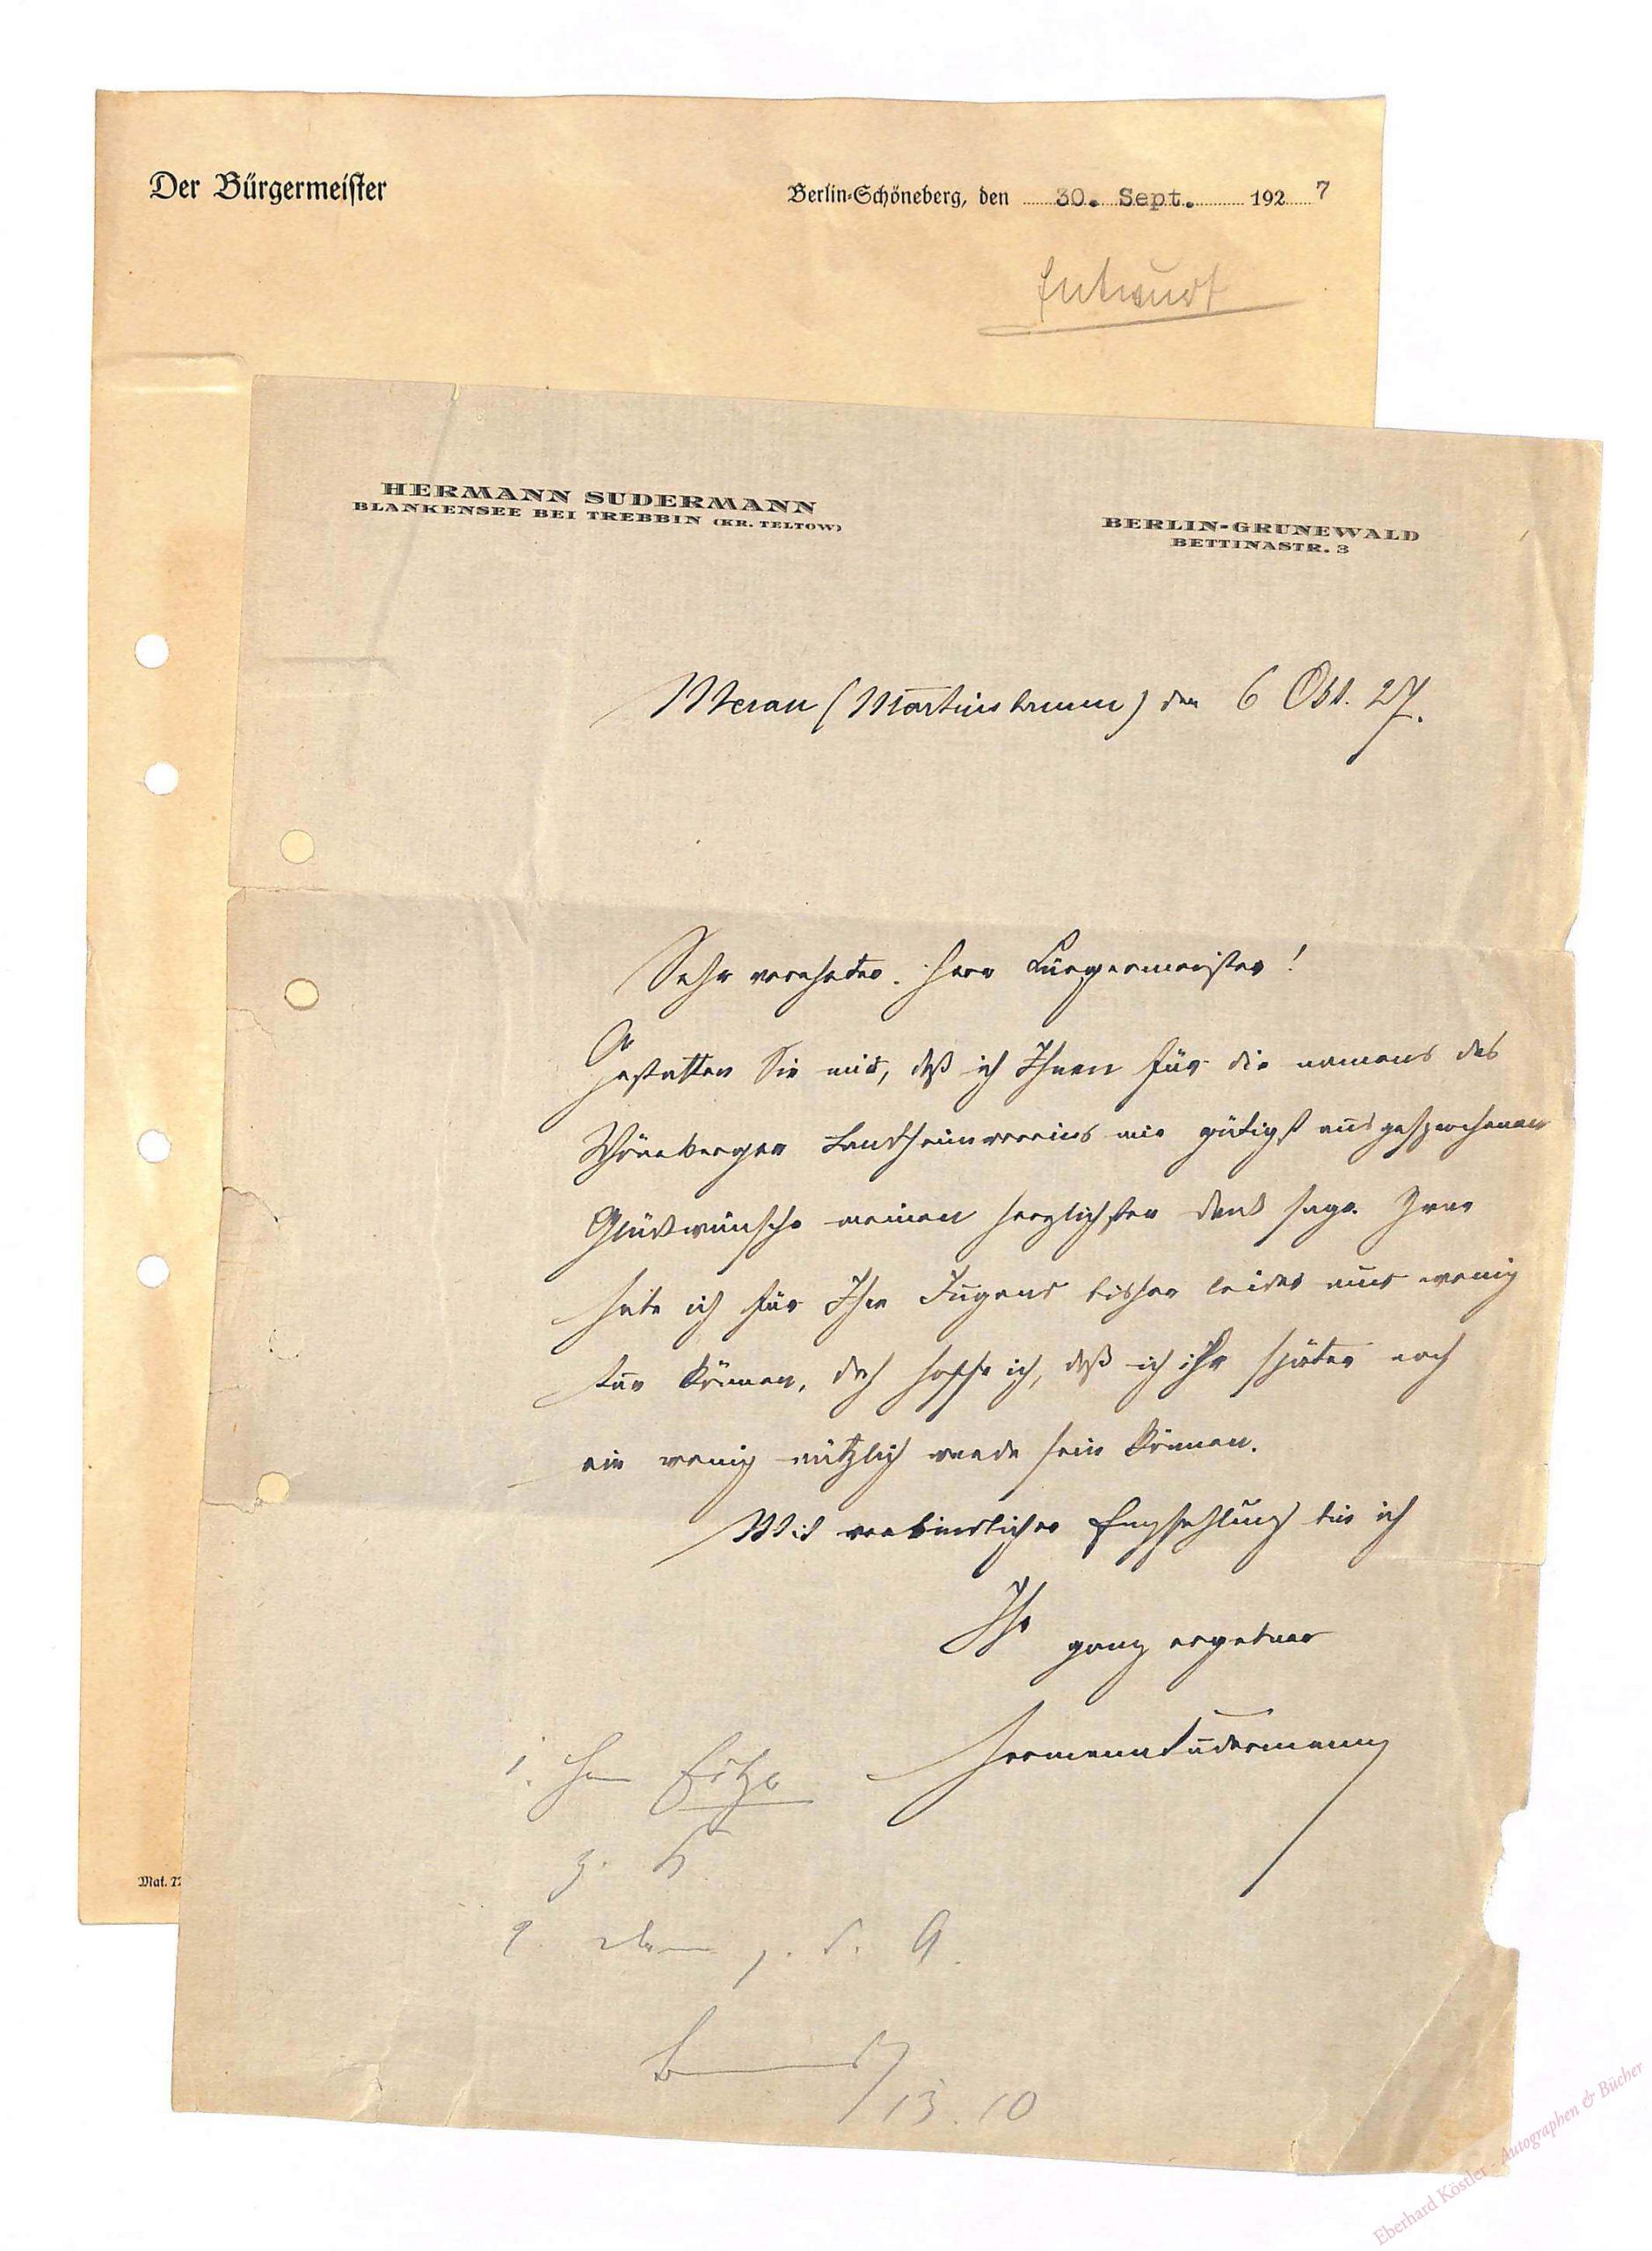 Der Bürgermeister
Berlin-Schöneberg, den 30. Sept. 1927
Entwurf
HERMANN SUDERMANN
BLANKENSEE BEI TREBBIN (KR. TELTOW)
BERLIN-GRUNEWALD
BETTINASTR. 3
Meran (Martinsbrunn) den 6 Okt. 27.
Sehr verehrter Herr Bürgermeister!
Gestatten Sie mir, daß ich Ihnen für die namens des
Schöneberger Landheimvereins mir gütigst ausgesprochenen
Glückwünsche meinen herzlichsten Dank sage. Zwar
habe ich für Ihre Jugend bisher leider nur wenig
tun können, doch hoffe ich, daß ich ihr später noch
ein wenig nützlich werde sein können.
Mit verbindlicher Empfehlung bin ich
Ihr ganz ergebener
Hermann Sudermann
1. Herrn
z. K.
2. z. d. A.
13.10
Mat. 72
Eberhard Köstler - Autographen & Bücher